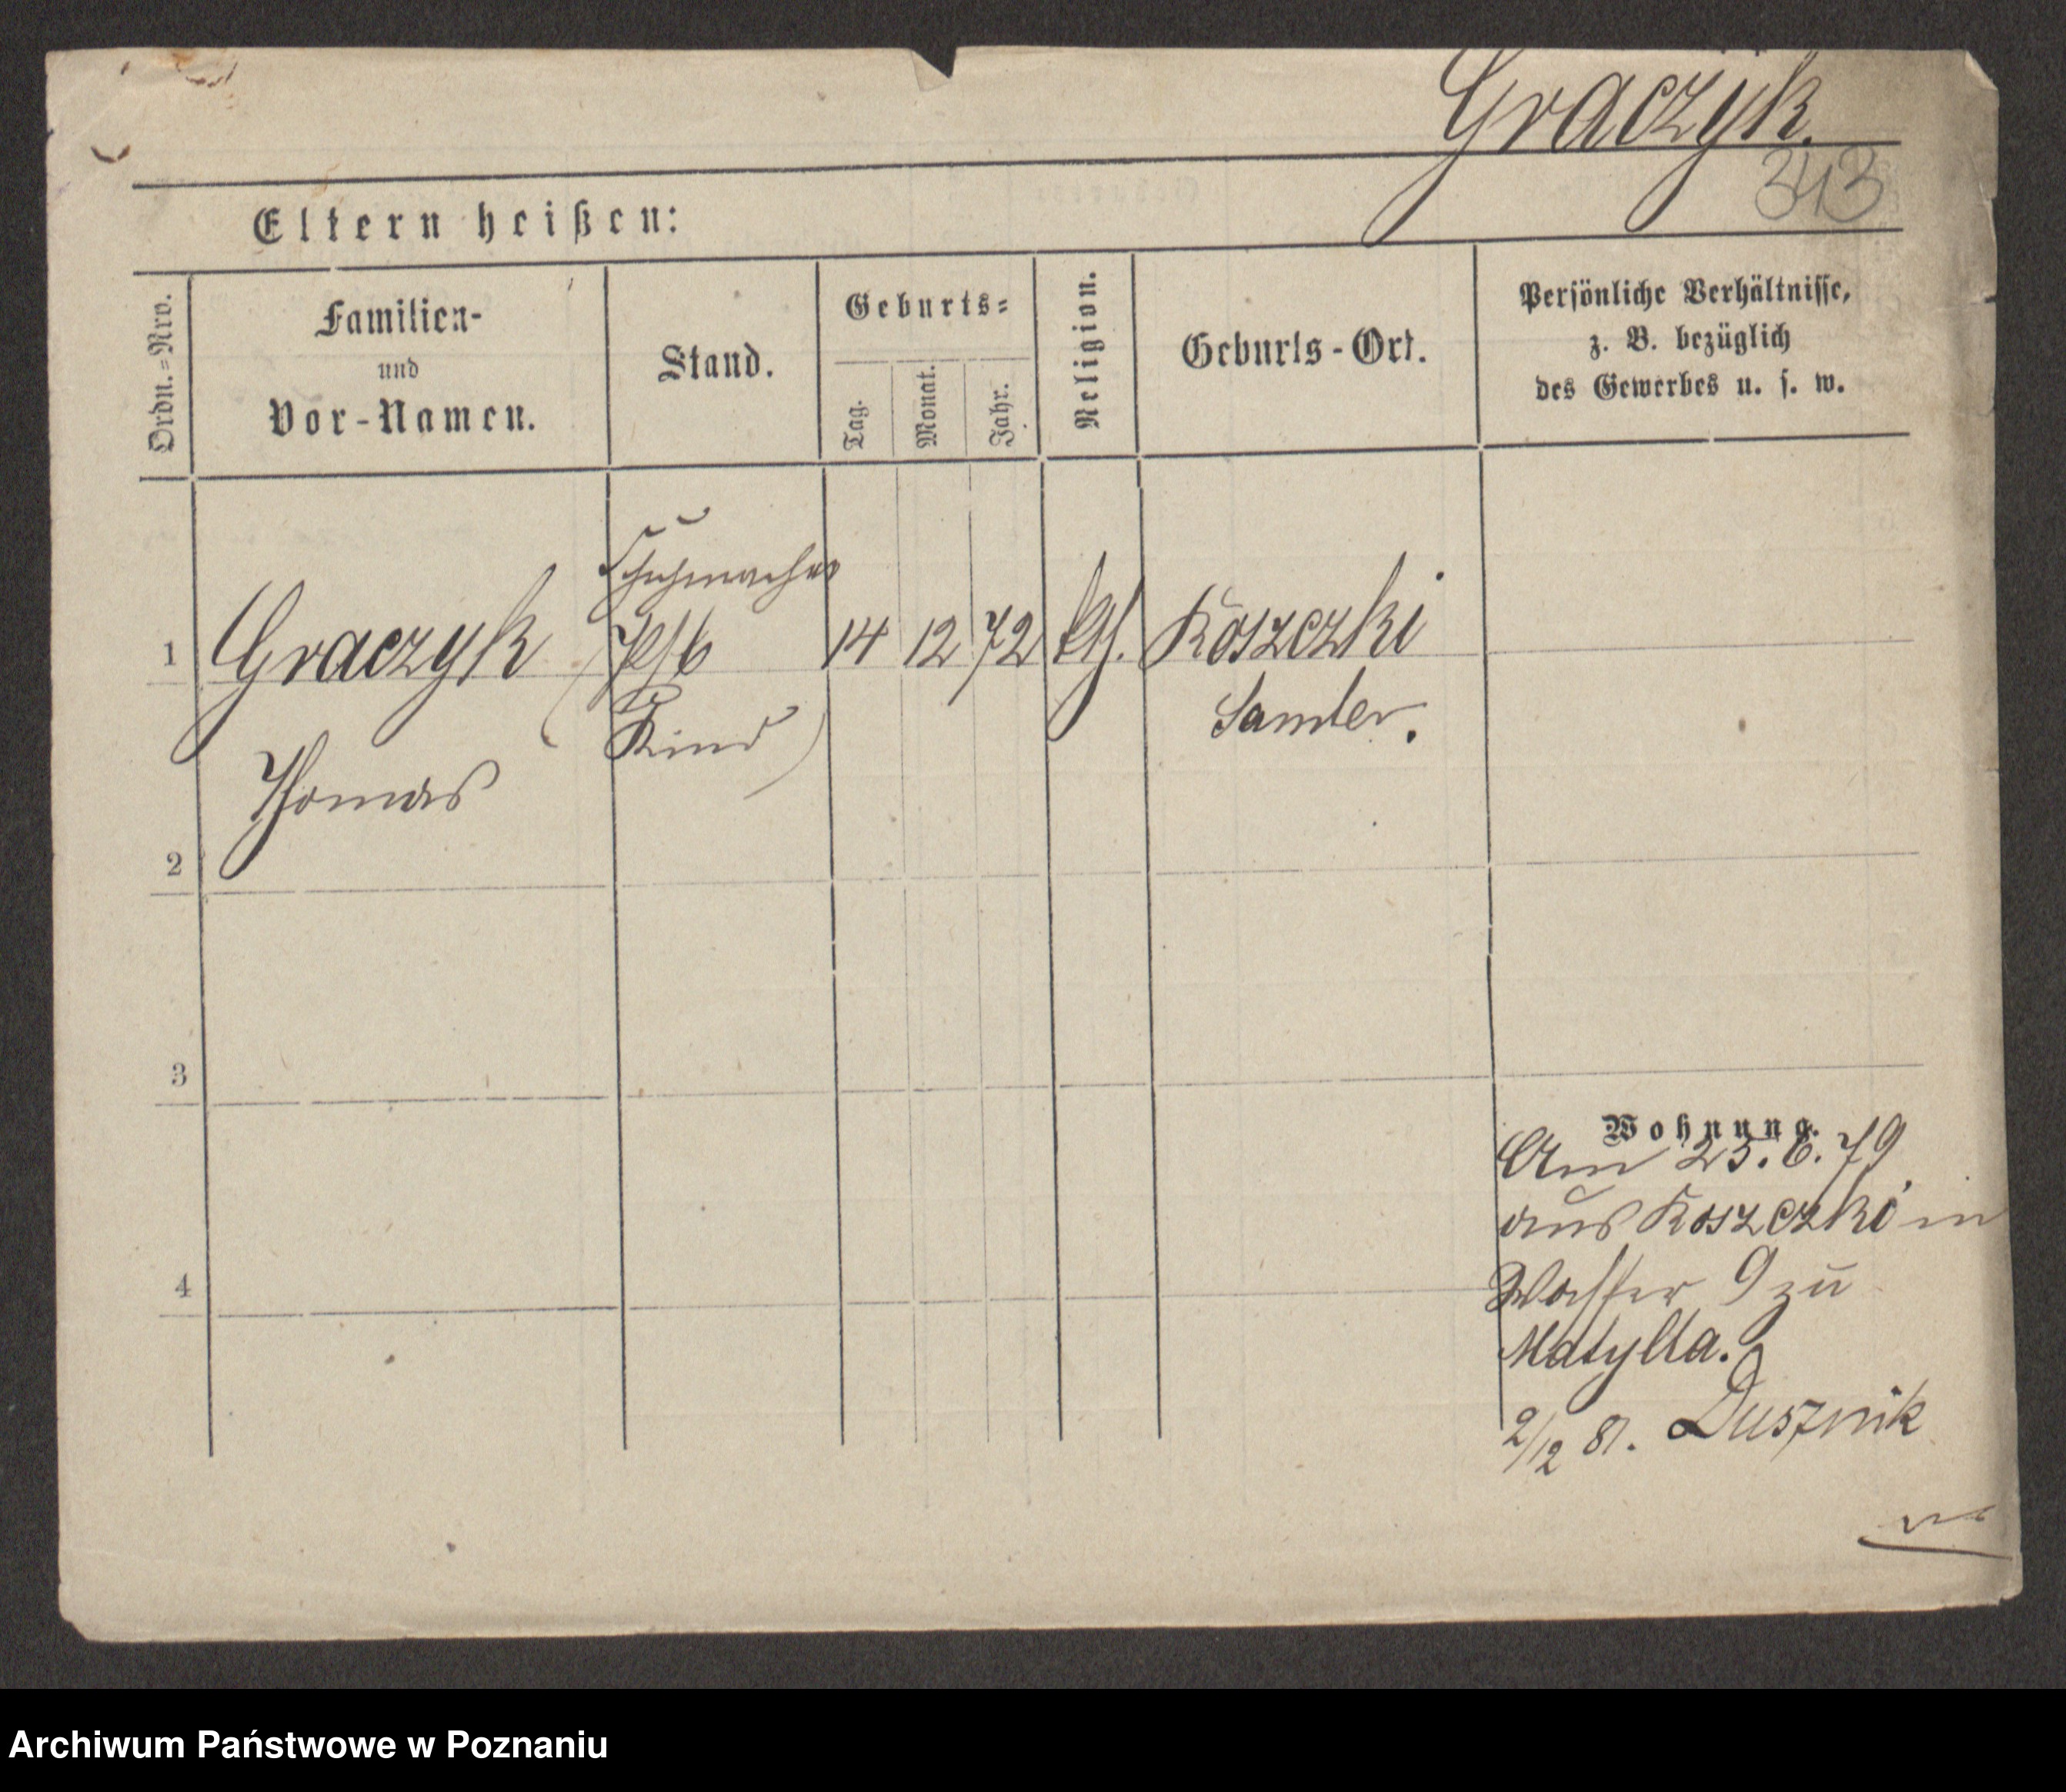 Graczyk.
343
Eltern heißen:
Ordn.=Nro.
Familien-
und
Vor-Namen.
Stand.
Geburts=
Tag.
Monat.
Jahr.
Religion.
Geburts-Ort.
Persönliche Verhältnisse,
z. B. bezüglich
des Gewerbes u. s. w.
Schuhmacher
1 Graczyk 14 12 72 kth. Koszczki
(Kind) Samter.
Thomas
2
3
Wohnung.
Am 25.6.79
aus Koszczki in
Wasser 9 zu
4
Matylda.
2/12 81. Dusznik
Archiwum Państwowe w Poznaniu